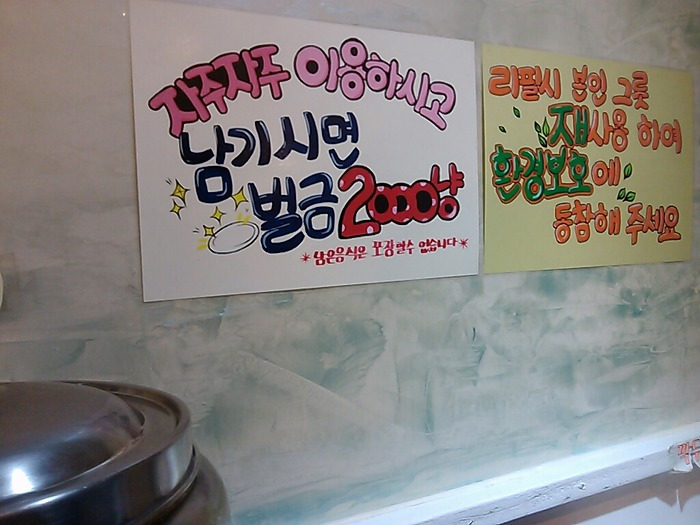 자주자주 이용하시고
남기시면
벌금 2000냥
*남은음식은 포장할수 없습니다*
리필시 본인 그릇
재사용 하여
환경보호에
동참해 주세요